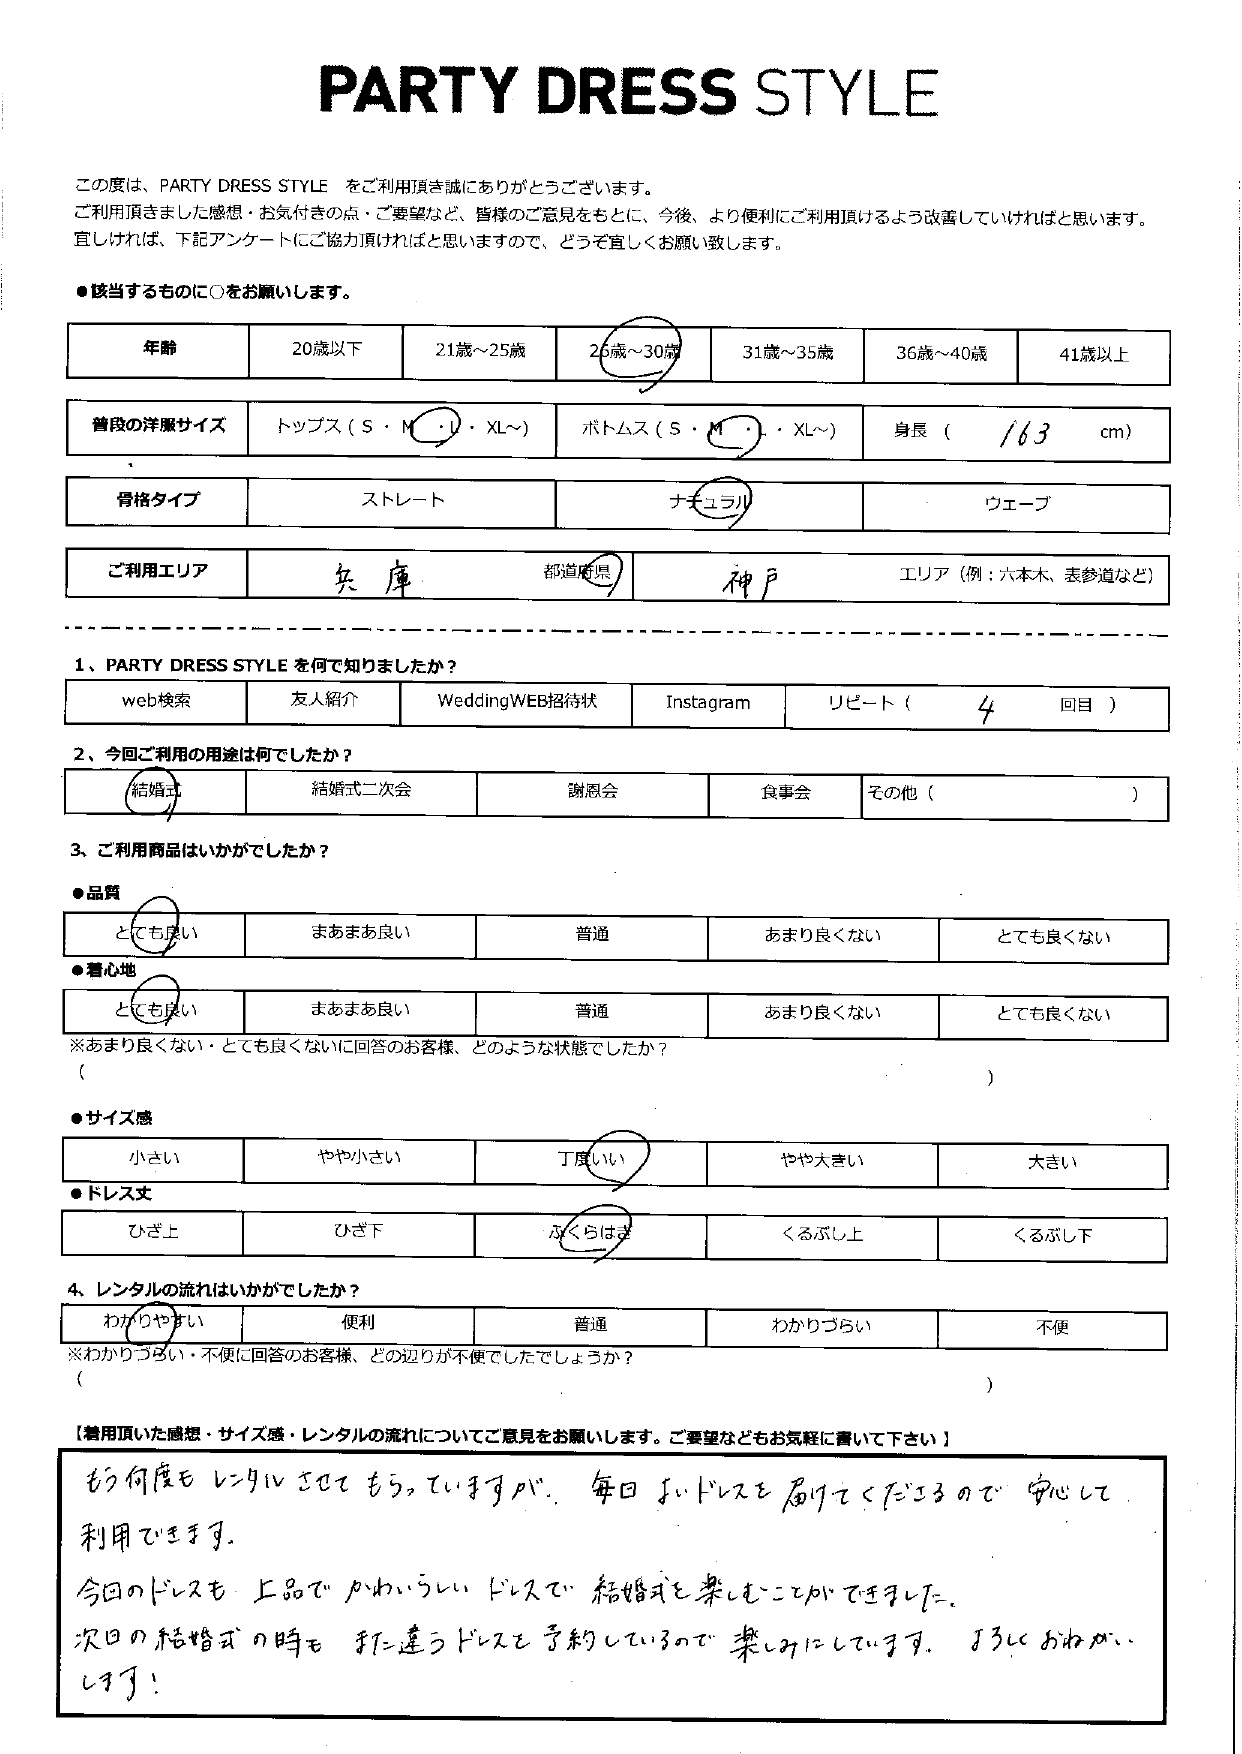 PARTY DRESS STYLE
この度は、PARTY DRESS STYLE をご利用頂き誠にありがとうございます。
ご利用頂きました感想・お気付きの点・ご要望など、皆様のご意見をもとに、今後、より便利にご利用頂けるよう改善していければと思います。
宜しければ、下記アンケートにご協力頂ければと思いますので、どうぞ宜しくお願い致します。
●該当するものに○をお願いします。
年齢 20歳以下 21歳～25歳 26歳～30歳 31歳～35歳 36歳～40歳 41歳以上
普段の洋服サイズ トップス ( S ・ M ・ L ・ XL～) ボトムス ( S ・ M ・ L ・ XL～) 身長 ( 163 cm)
骨格タイプ ストレート ナチュラル ウェーブ
ご利用エリア 兵庫 都道府県 神戸 エリア（例：六本木、表参道など）
1、PARTY DRESS STYLE を何で知りましたか？
web検索 友人紹介 WeddingWEB招待状 Instagram リピート ( 4 回目 )
2、今回ご利用の用途は何でしたか？
結婚式 結婚式二次会 謝恩会 食事会 その他 ( )
3、ご利用商品はいかがでしたか？
●品質
とても良い まあまあ良い 普通 あまり良くない とても良くない
●着心地
とても良い まあまあ良い 普通 あまり良くない とても良くない
※あまり良くない・とても良くないに回答のお客様、どのような状態でしたか？
( )
●サイズ感
小さい やや小さい 丁度いい やや大きい 大きい
●ドレス丈
ひざ上 ひざ下 ふくらはぎ くるぶし上 くるぶし下
4、レンタルの流れはいかがでしたか？
わかりやすい 便利 普通 わかりづらい 不便
※わかりづらい・不便に回答のお客様、どの辺りが不便でしたでしょうか？
( )
【着用頂いた感想・サイズ感・レンタルの流れについてご意見をお願いします。ご要望などもお気軽に書いて下さい】
もう何度もレンタルさせてもらっていますが、毎回よいドレスを届けてくださるので安心して
利用できます。
今回のドレスも上品でかわいらしいドレスで結婚式を楽しむことができました。
次回の結婚式の時もまた違うドレスを予約しているので楽しみにしています。よろしくおねがい
します！